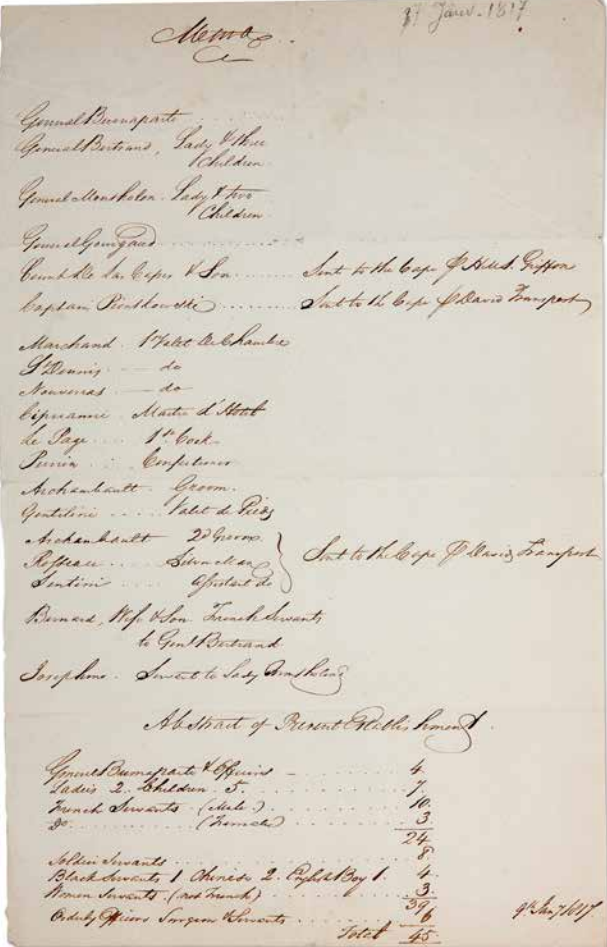 17 Janv. 1817
Memo
General Buonaparte
General Bertrand, Lady & three
Children
General Montholon. Lady & two
Children
General Gourgaud
Count De Las Cases & Son Sent to the Cape P H.M.S. Griffon
Captain Piontkowski Sent to the Cape P David Transport
Marchand 1st Valet De Chambre
St Dennis — do
Nouveras — do
Cipreanni Maitre d'Hotel
Le Page 1st Cook
Pierin Confectioner
Archambault Groom.
Gentilini Valet de Pieds
Archambault 2d Groom
Rosseau Silverman Sent to the Cape P David Transport
Santini Assistant do
Bernard, Wife & Son French Servants
to Genl Bertrand
Josephine. Servant to Lady Montholon
Abstract of Present Establishment.
General Buonaparte & Officers — 4.
Ladies 2. Children. 5. 7.
French Servants (Male.) 10.
Do. (Female) 3
24
Soldier Servants 8
Black Servants 1 Chinese 2. English Boy 1. 4.
Women Servants. (not French) 3.
39
Orderly Officers Surgeon & Servants 6
Total 45
9th Jany 1817.